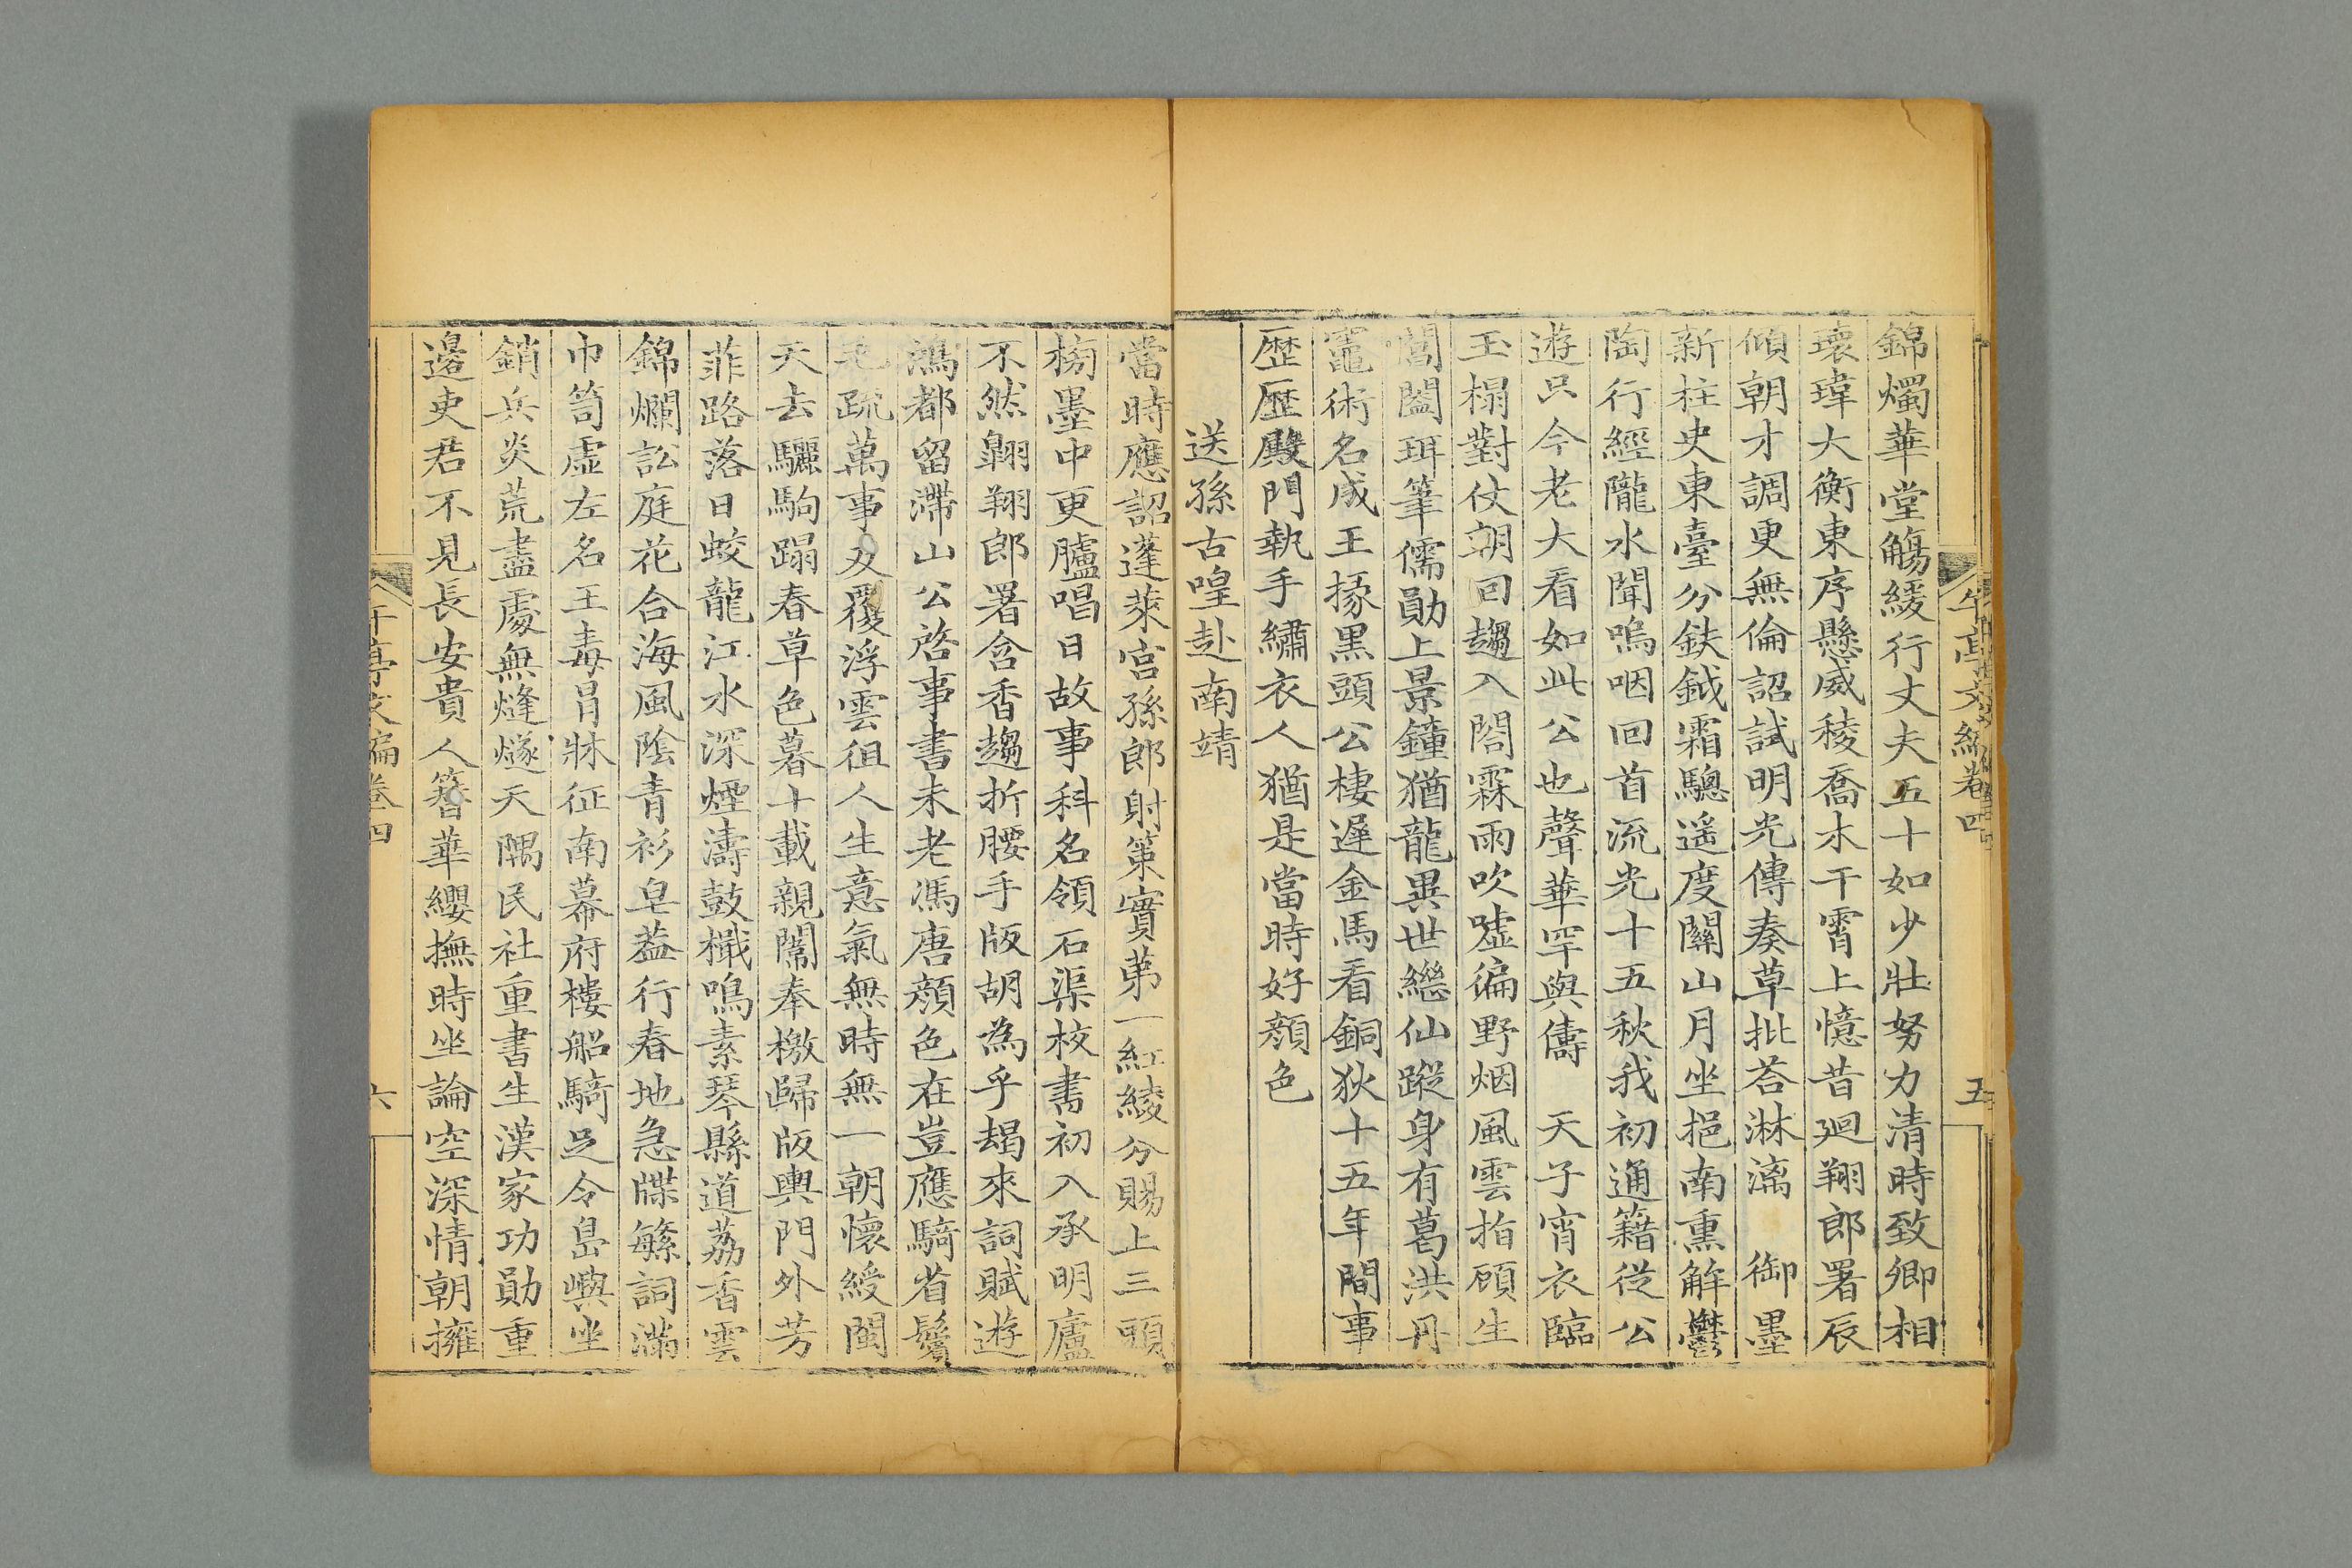 午亭文編卷四
五
錦燭華堂觴緩行丈夫五十如少壯努力清時致卿相
瓌瑋大衡東序懸威稜喬木干霄上憶昔廻翔郎署辰
傾朝才調更無倫詔試明光傳奏草批荅淋漓　御墨
新柱史東臺分鈇鉞霜驄遥度關山月坐挹南熏解鬱
陶行經隴水聞嗚咽回首流光十五秋我初通籍從公
遊只今老大看如此公也聲華罕與儔　天子宵衣臨
玉榻對仗朝回趨入閤霖雨吹噓徧野烟風雲指顧生
閶闔珥筆儒勛上景鐘猶龍異世繼仙蹤身有葛洪丹
竈術名成王掾黑頭公棲遲金馬看銅狄十五年間事
歷歷殿門執手繡衣人猶是當時好顏色
送孫古喤赴南靖
當時應詔蓬萊宮孫郎射策實第一紅綾分賜上三頭
榜墨中更臚唱日故事科名領石渠校書初入承明廬
不然翺翔郎署含香趨折腰手版胡為乎朅來詞賦遊
鴻都留滯山公啓事書未老馮唐顏色在豈應騎省鬢
毛疏萬事反覆浮雲徂人生意氣無時無一朝懷綬閩
天去驪駒蹋春草色暮十載親闈奉檄歸版輿門外芳
菲路落日蛟龍江水深煙濤鼓檝鳴素琴縣道荔香雲
錦爛訟庭花合海風陰青衫皂葢行春地急牒繁詞滿
巾笥虛左名王毒冐牀征南幕府樓船騎足令島嶼坐
銷兵炎荒盡處無燧燧天隅民社重書生漢家功勛重
邊吏君不見長安貴人簪華纓撫時坐論空深情朝擁
午亭文編卷四
六